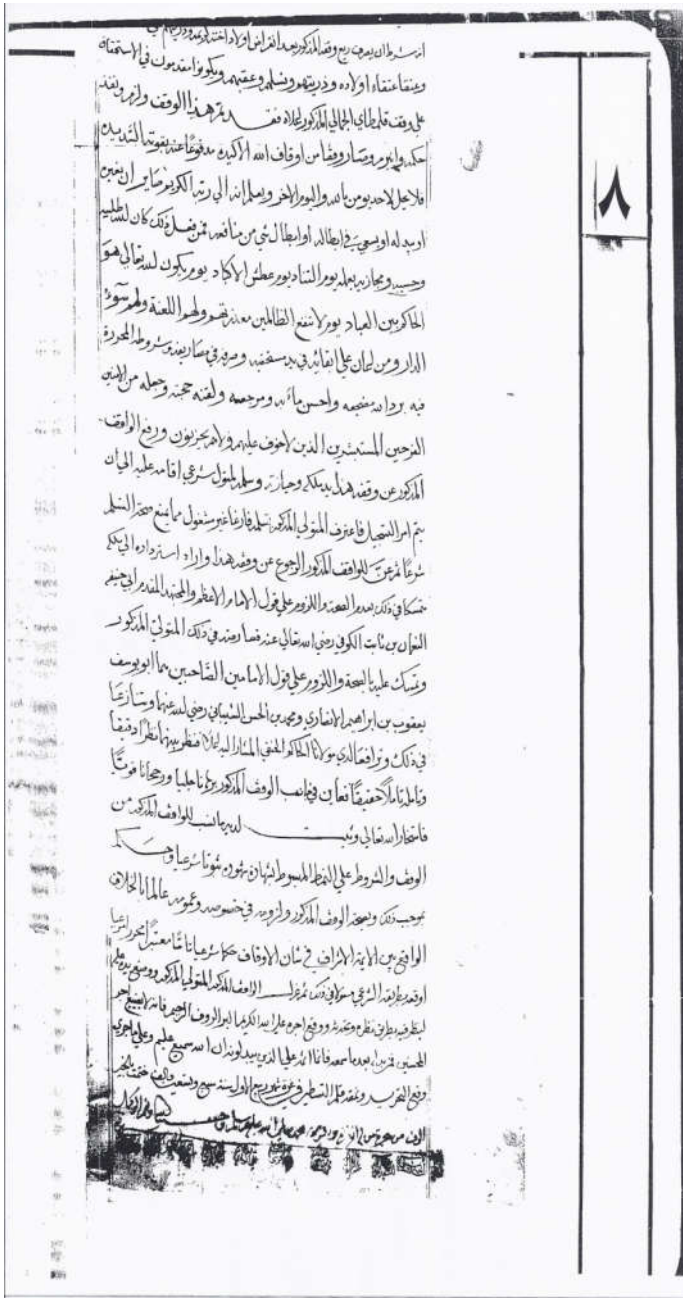 از شرط ان يصرف ريع وقفه المذكور بعد انقراض اولاد اخته
وعتقا عتقاء اولاده وذريتهم ونسلهم وعقبهم ويكونوا مقدمون في الاستحقاق
على وقف قلمطاي الجمالي المذكور اعلاه فقد تم هذا الوقف ولزم ونفذ
حكمه وانبرم وصار وقفا من اوقاف الله الاكيده مدفوعا عنه بقوته الشديده
فلا يحل لاحد يومن بالله واليوم الاخر ويعلم انه الى ربه الكريم صاير ان يغيره
او يبدله او يسعى في ابطاله او ابطال شي من منافعه فمن فعل ذلك كان الله طليبه
وحسيبه ومجازيه بعمله يوم التناد يوم عطش الاكباد يوم يكون الله تعالى هو
الحاكم بين العباد يوم لا تنفع الظالمين معذرتهم ولهم اللعنة ولهم سوء
الدار ومن اعان على ابقائه في يد مستحقيه وصرفه في مصاريفه وشروطه المحررة
فيه برد الله مضجعه واحسن مآبه ومرجعه ولقنه حجته وجعله من الامنين
الفرحين المستبشرين الذين لا خوف عليهم ولا هم يحزنون ورفع الواقف
المذكور عن وقفه هذا يد ملكه وحيازته وسلمه لمتول شرعي اقامه عليه الى ان
يتم امر التسجيل فاعترف المتولى المذكور بتسلمه فارغا غير مشغول مما يمنع صحة التسلم
شرعا ثم عنّ للواقف المذكور الرجوع عن وقفه هذا واراد استرداده الى ملكه
متمسكا في ذلك بعدم الصحة واللزوم على قول الامام الاعظم والمجتهد المقدم ابى حنيفه
النعمان بن ثابت الكوفي رضي الله تعالى عنه فعارضه في ذلك المتولي المذكور
وتمسك عليه بالصحة واللزوم على قول الامامين الصاحبين هما ابو يوسف
يعقوب بن ابراهيم الانصاري ومحمد بن الحسن الشيباني رضي الله عنهما وتنازعا
في ذلك وترافعا لدي مولانا الحاكم الحنفي المشار اليه اعلاه فنظر بينهما نظرا دقيقا
وتامله تاملا حقيقا فعاين في جانب الوقف المذكور برهانا جليا ورجحانا قويا
فاستخار الله تعالى وثبت لديه جانب للواقف المذكور من
الوقف والشروط على النمط المبسوط بشهادة شهوده ثبوتا شرعيا وحكم
بموجب ذلك وبصحة الوقف المذكور ولزومه في خصوصه وعمومه عالما بالخلاف
الواقع بين الايمة الاشراف في شان الاوقاف حكما شرعيا تاما معتبرا محررا مرعيا
اوقعه بطريقه الشرعي مسئولا في ذلك ثم عزل الواقف المذكور المتولي المذكور ووضع يده عليه
لينظر فيه بطريق نظره وتحدثه ووقع اجره على الله الكريم البر الروف الرحيم فانه لا يضيع اجر
المحسنين فمن بدله بعد ما سمعه فانما اثمه على الذين يبدلونه ان الله سميع عليم وعلى ما جرى
وقع التحرير ونفذ قلم التسطير في غرة شهر ربيع الاول سنة سبع وتسعين
الالف من هجرة من له العز والشرف محمد صلى الله عليه وسلم
٨